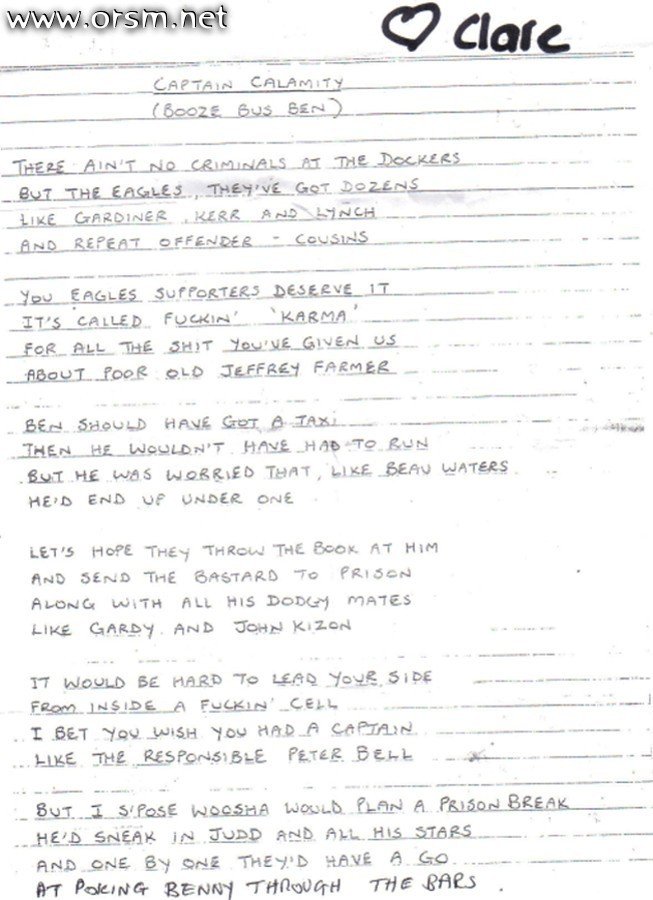 www.orsm.net
♡ Clare
CAPTAIN CALAMITY
(BOOZE BUS BEN)
THERE AIN'T NO CRIMINALS AT THE DOCKERS
BUT THE EAGLES, THEY'VE GOT DOZENS
LIKE GARDINER, KERR AND LYNCH
AND REPEAT OFFENDER - COUSINS
YOU EAGLES SUPPORTERS DESERVE IT
IT'S CALLED FUCKIN' 'KARMA'
FOR ALL THE SHIT YOU'VE GIVEN US
ABOUT POOR OLD JEFFREY FARMER
BEN SHOULD HAVE GOT A TAXI
THEN HE WOULDN'T HAVE HAD TO RUN
BUT HE WAS WORRIED THAT, LIKE BEAU WATERS
HE'D END UP UNDER ONE
LET'S HOPE THEY THROW THE BOOK AT HIM
AND SEND THE BASTARD TO PRISON
ALONG WITH ALL HIS DODGY MATES
LIKE GARDY AND JOHN KIZON
IT WOULD BE HARD TO LEAD YOUR SIDE
FROM INSIDE A FUCKIN' CELL
I BET YOU WISH YOU HAD A CAPTAIN
LIKE THE RESPONSIBLE PETER BELL
BUT I S'POSE WOOSHA WOULD PLAN A PRISON BREAK
HE'D SNEAK IN JUDD AND ALL HIS STARS
AND ONE BY ONE THEY'D HAVE A GO
AT POKING BENNY THROUGH THE BARS.